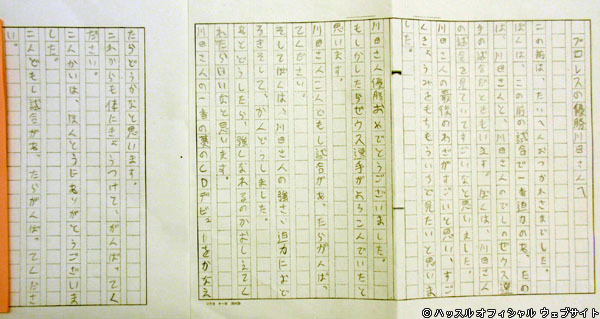 プロレスの優勝川田さんへ
この前は、たいへんおつかれさまでした。
ぼくは、この前の試合で一番迫力のあ、たの
は、川田さんと川田さんのでしのゼウス選
手の試合だともいます。ぼくは、川田さん
の試合を見ていてすごいなと思いました。
川田さんの最後のわざがすごいと思い、すご
んきょうみをもち、もういちど見たいと思いま
した。
川田さん優勝おめでとうございました。
もしかしたらゼウス選手がよろこんでいたと
思います。
川田さん二人とも試合があ、たらがんば、
てください。
そしてぼくは、川田さんの強さ、迫力におど
ろきそして、かんどうしました。
あとどうしたら、強くなれるのかおしえてく
れたらいいなと思います。
川田さんの一番の夢のCDデビューをかなえ
たらどうかなと思います。
これからも体にきょうつけて、がんば、てく
ださい。
こんかいは、ほんとうにありがとうございま
した。
二人とも試合があ、たらがんば、てくださ
い。
© ハッスル オフィシャル ウェブサイト